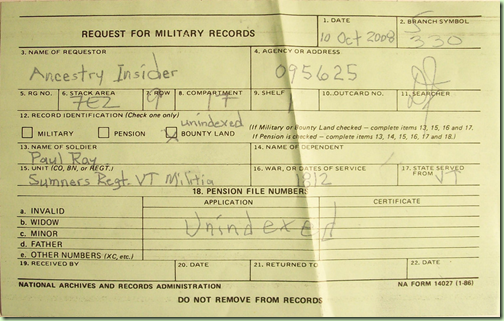 REQUEST FOR MILITARY RECORDS
1. DATE
10 Oct 2008
2. BRANCH SYMBOL
5
330
3. NAME OF REQUESTOR
Ancestry Insider
4. AGENCY OR ADDRESS
095625
5. RG NO.
6. STACK AREA
7E2
7. ROW
9
8. COMPARTMENT
17
9. SHELF
10. OUTCARD NO.
11. SEARCHER
12. RECORD IDENTIFICATION (Check one only)
unindexed
MILITARY
PENSION
BOUNTY LAND
(If Military or Bounty Land checked — complete items 13, 15, 16 and 17.
If Pension is checked — complete items 13, 14, 15, 16, 17 and 18.)
13. NAME OF SOLDIER
Paul Ray
14. NAME OF DEPENDENT
15. UNIT (CO, BN, or REGT.)
Sumners Regt. VT Militia
16. WAR, OR DATES OF SERVICE
1812
17. STATE SERVED FROM
VT
18. PENSION FILE NUMBER
APPLICATION
CERTIFICATE
a. INVALID
b. WIDOW
c. MINOR
d. FATHER
e. OTHER NUMBERS (XC, etc.)
Unindexed
19. RECEIVED BY
20. DATE
21. RETURNED TO
22. DATE
NATIONAL ARCHIVES AND RECORDS ADMINISTRATION
NA FORM 14027 (1-86)
DO NOT REMOVE FROM RECORDS